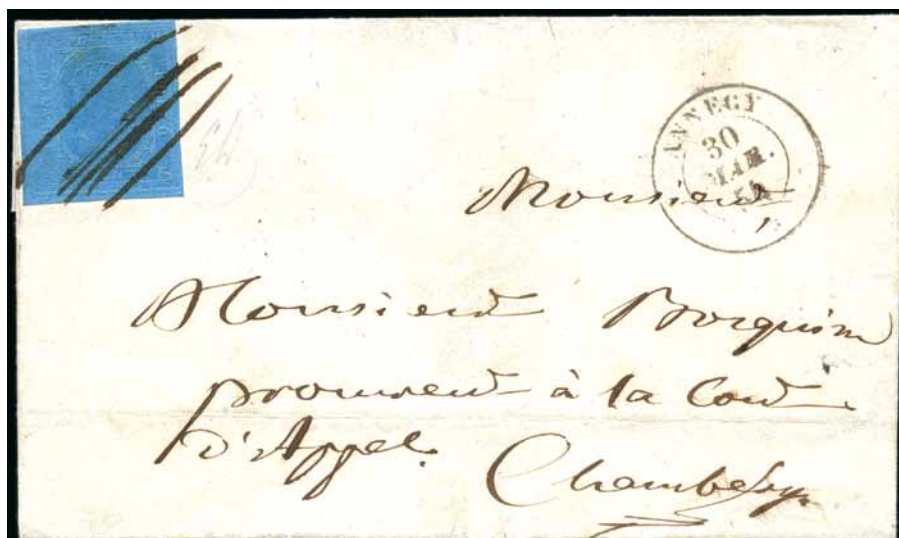 ANNECY
30
MAR.
54
Monsieur
Monsieur Borquin
procureur à la Cour
d'Appel.
Chambéry